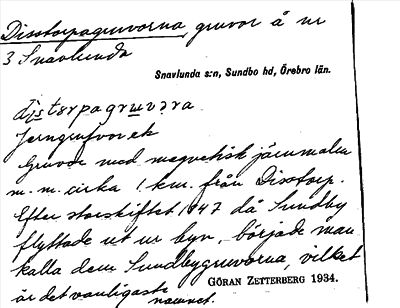 Disstorpagruvorna, gruvor å nr
3 Snavlunda
Snavlunda s:n, Sundbo hd, Örebro län.
distorpagruvəra
Gruvor med magnetisk järnmalm
m. m. cirka 1 km. från Disstorp.
Efter storskiftet 1847 då Sundby
flyttade ut ur byn, började man
kalla dem Sundbygruvorna, vilket
är det vanligaste namnet.
GÖRAN ZETTERBERG 1934.